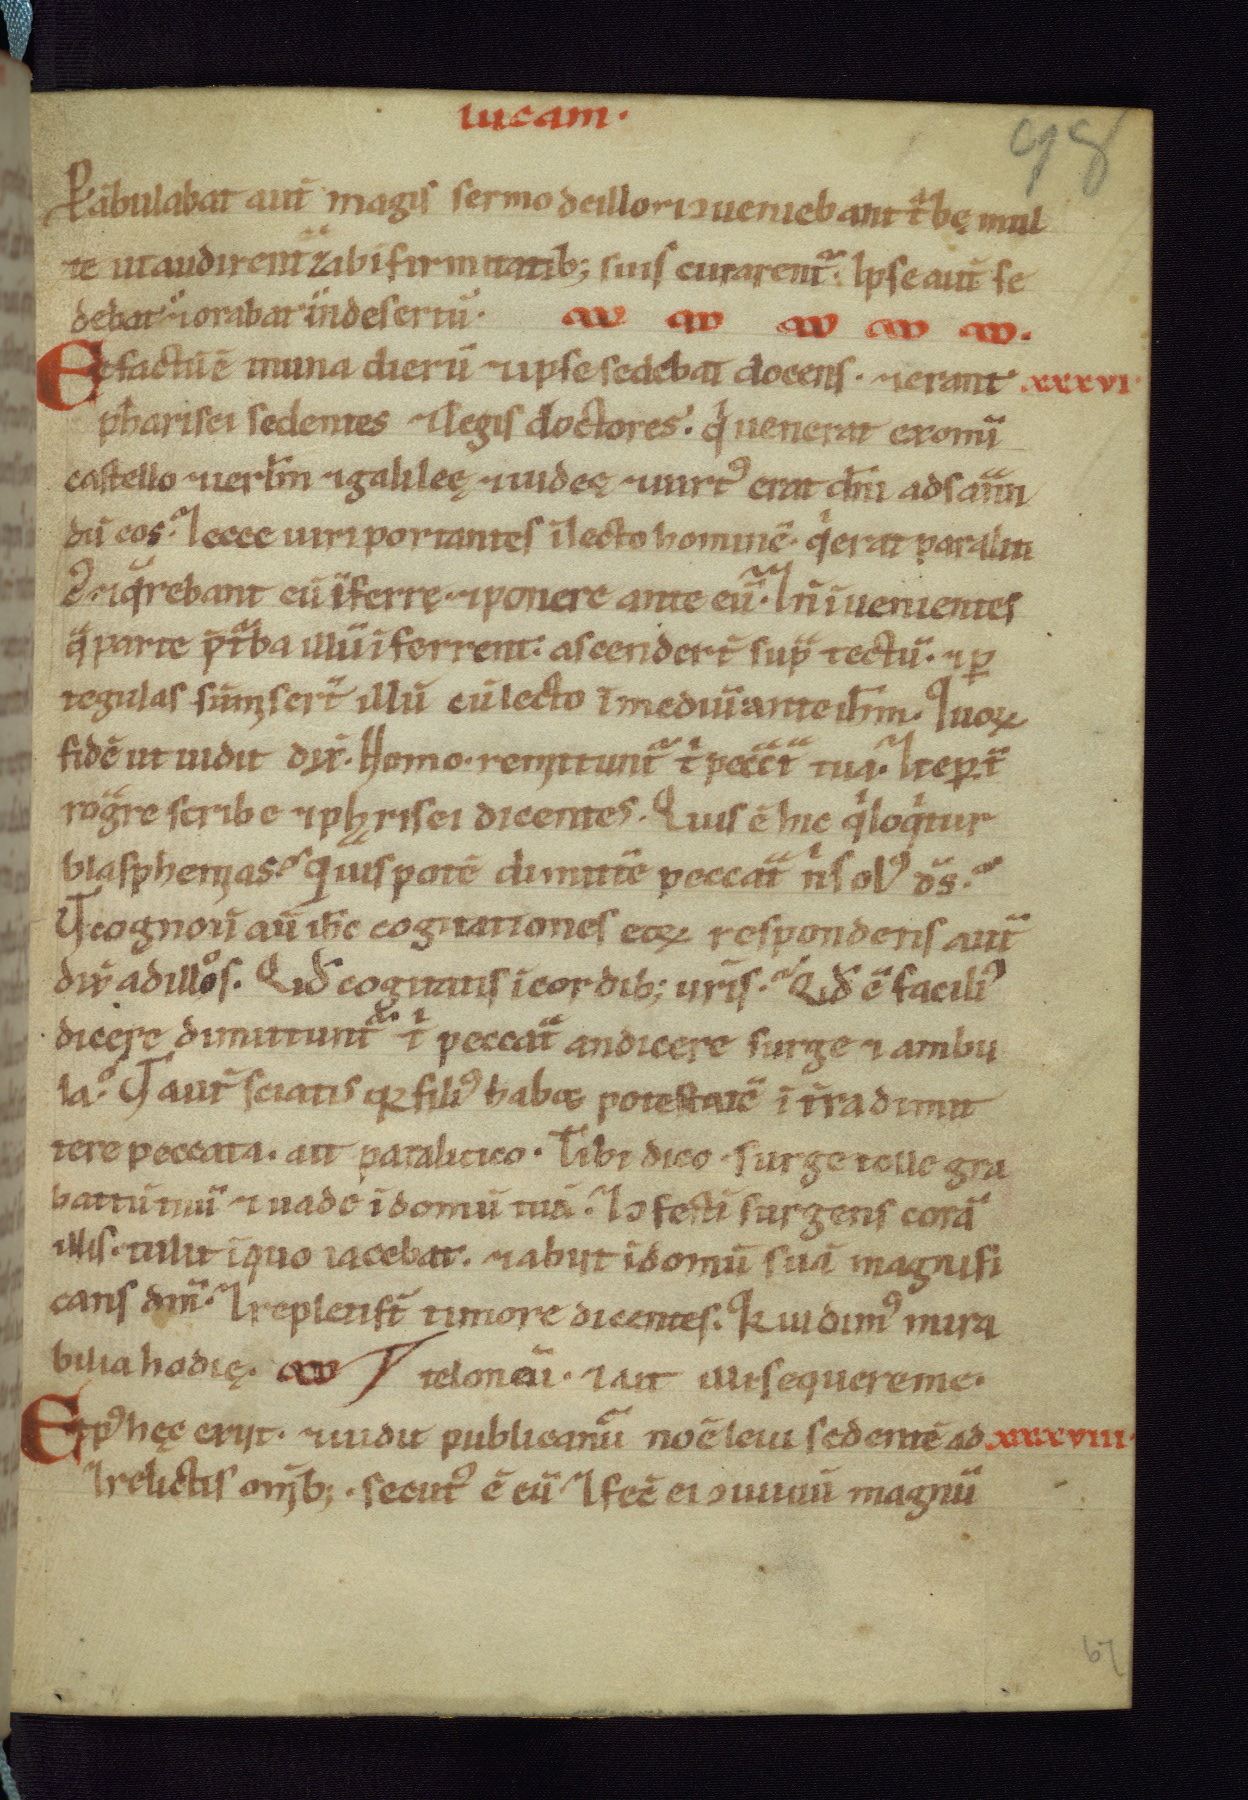 lucam.
98
Pābulabat aut̄ magis sermo deillo ⁊ ɔueniebant t͛bę mul
te utaudirent ⁊ abīfirmitatib; suis curarent᷑. Ipse aut̄ se
debat ⁊ orabat indesertū.
Et factū ē inuna dierū ⁊ ipse sedebat docens. ⁊ erant xxxvi
pharisei sedentes ⁊ legis doctores. q̇ uenerat exomī
castello ⁊ ierl̄m ⁊ galileę ⁊ iudeę ⁊ uirtꝰ erat dn̄i adsanā
dū eos. ⁊ ecce uiri portantes ī lecto hominē. q̇ erat paraliti
cꝰ ⁊ q̄rebant eū īferrę ⁊ ponere ante eū. ⁊ n̄ īuenientes
q̄ parte p̄ t᷑ba illū īferrent. ascendert̄ sup̄ tectū. ⁊ ꝑ
tegulas sūmisert̄ illū cū lecto ī mediū ante ih̄m. Quoꝝ
fidē ut uidit dix̄. Homo. remittunt᷑ t̄ peccāt tua. ⁊ ceꝑt̄
rog̃re scribe ⁊ phąrisei dicentes. Quis ē hic q̇ loq̇tur
blasphemias. Quis potē dimittē peccāt n̄ sol̉ꝰ ds̄.
Ut cognou̅ aū ih̄c cogitationes eoꝝ respondens aut̄
dix̄ adillos. Qid̄ cogitatis ī cordib; ur̄is. Qid̄ ē faciliꝰ
dicere dimittunt᷑ t̄ peccāt andicere surge ⁊ ambu
la. Ut aut̄ sciatis qꝛ filiꝰ habæ potestatē ī tr̄a dimit
tere peccata. ait paralitico. Tibi dico. surge tolle gra
battū tuū ⁊ uade ī domū tuā. ⁊ ɔfestī surgens corā
illis. tulit ī quo iacebat. ⁊ abiit ī domū suā magnifi
cans dm̄. ⁊ repletist̄ timore dicentes. Qꝛ uidimꝰ mira
bilia hodię. teloneū. ⁊ ait illi sequere me.
Et pꝰ hęc exijt. ⁊ uidit publicanū noē leui sedentē ad xxxviii.
⁊ relictis omīb; . secutꝰ ē eū ⁊ fec̄ ei ɔuiuiū magnū
67